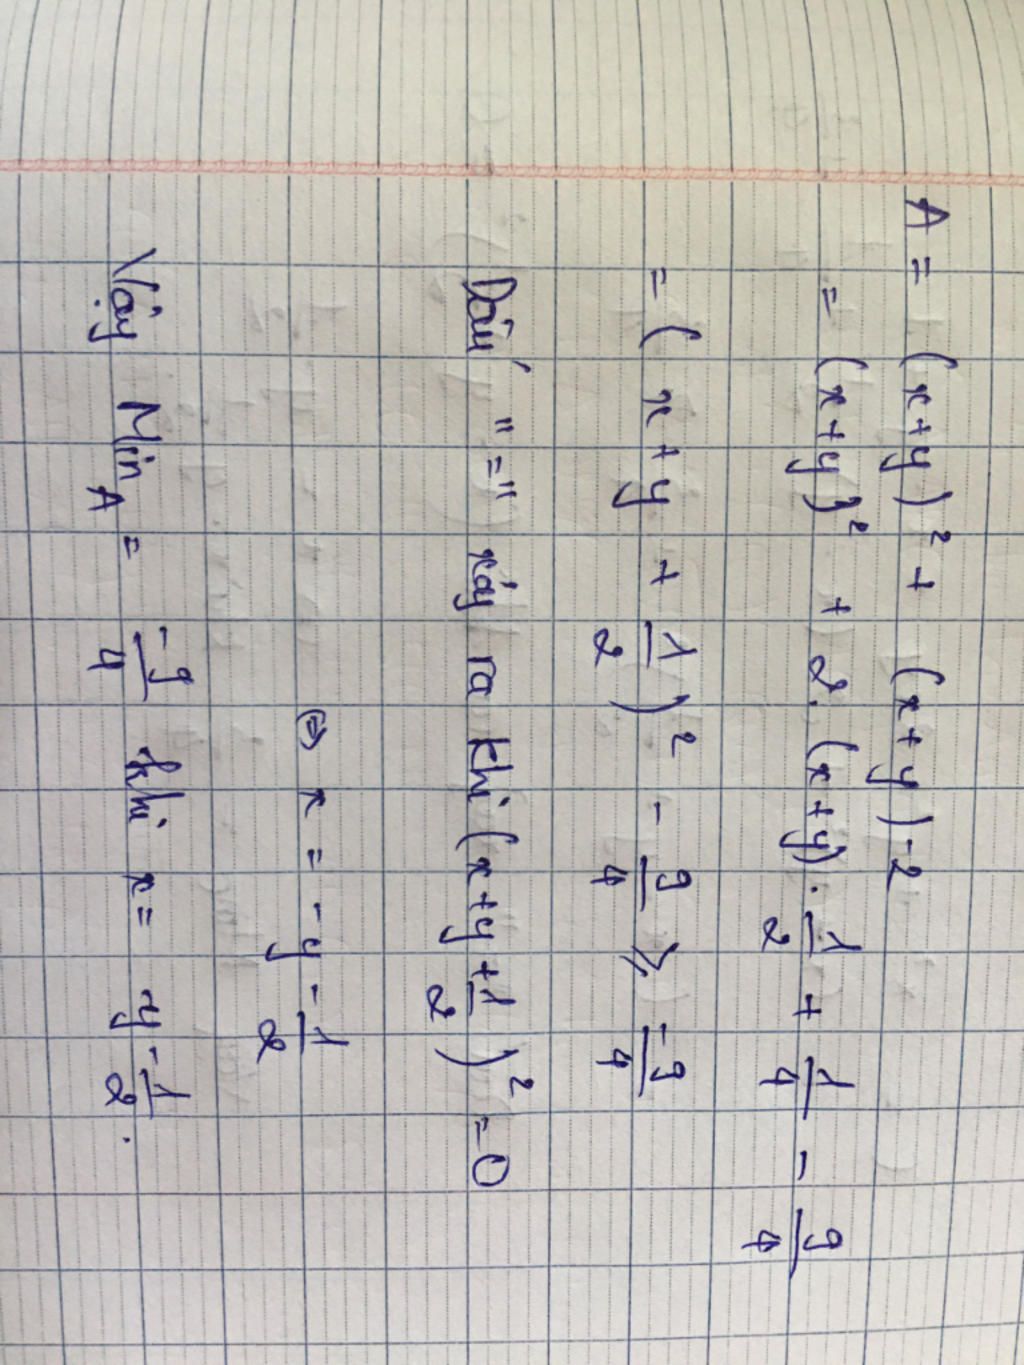 A = (x+y)² + (x+y) -2
= (x+y)² + 2. (x+y). 1/2 + 1/4 - 9/4
= ( x + y + 1/2 )² - 9/4 ⩾ -9/4
Dấu "=" xảy ra khi (x+y +1/2 )² =0
⇔ x = -y - 1/2
Vậy Min A = -9/4 khi x = y - 1/2 .